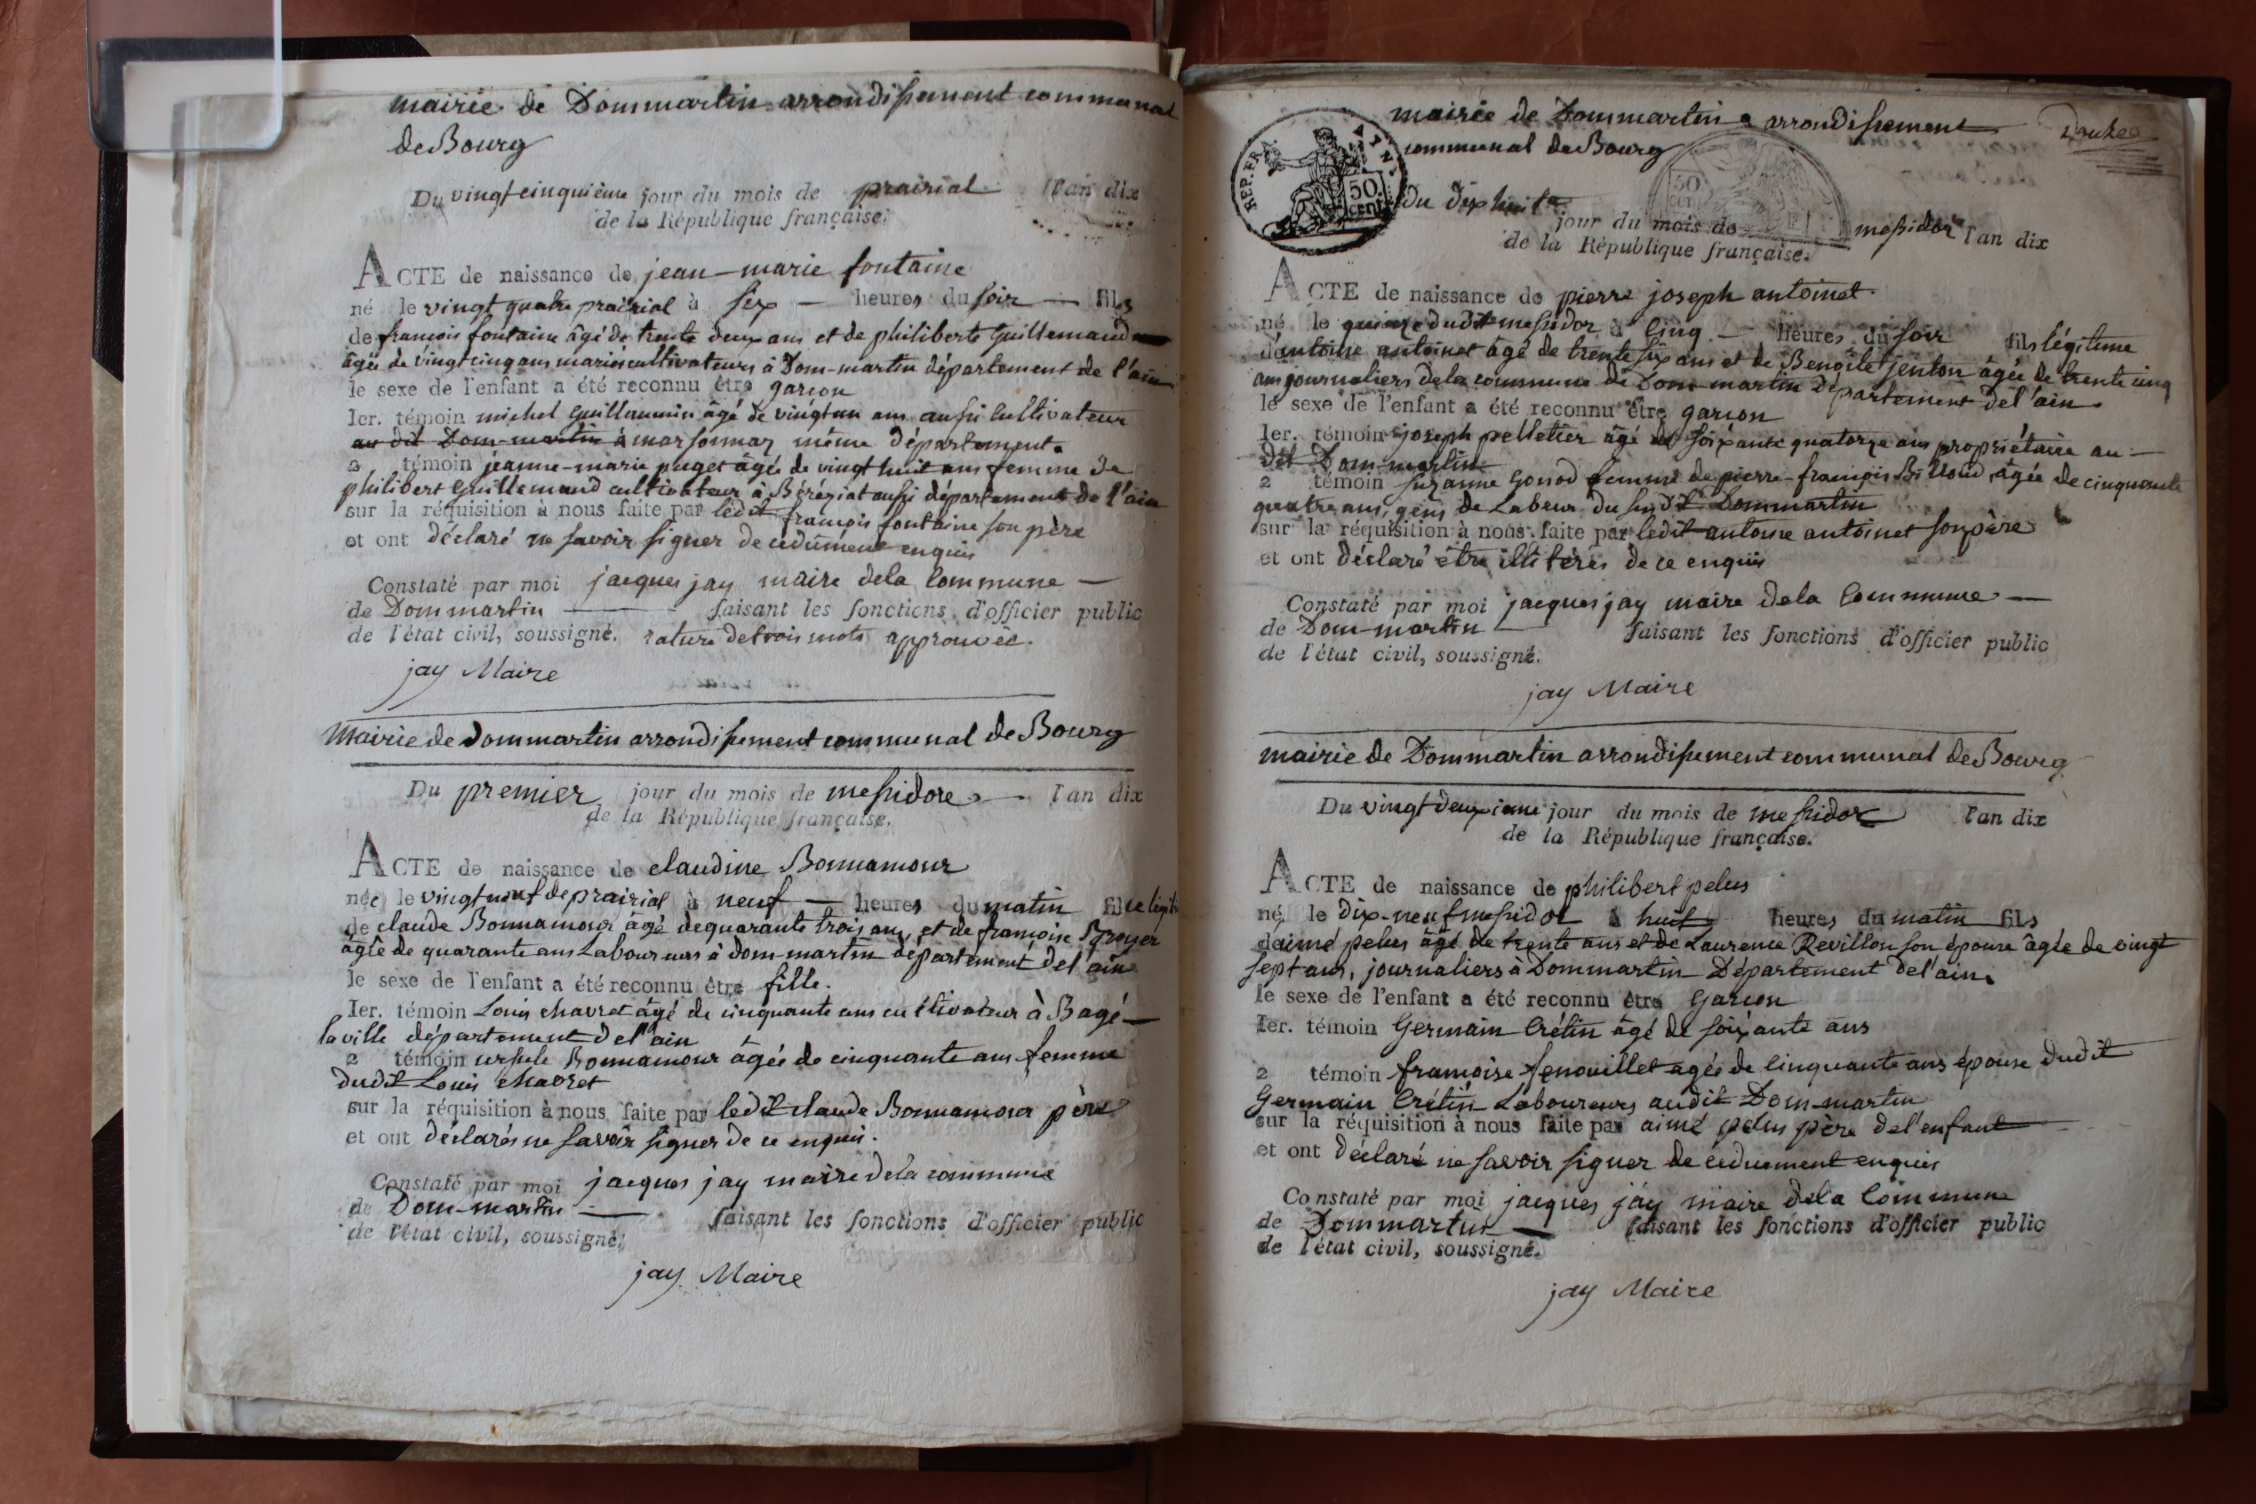 mairie de Dommartin arrondissement communal
de Bourg
Du vingt cinquième jour du mois de prairial l'an dix
de la République française.
ACTE de naissance de jean-marie fontaine
né le vingt quatre prairial à six — heures du soir — fils
de françois fontaine âgé de trente deux ans et de philiberte Guillemaud
âgée de vingt cinq ans mariés cultivateurs à Dom-martin département de l'ain
le sexe de l'enfant a été reconnu être garçon
Ier. témoin michel Guillaumin âgé de vingt un ans aussi Cultivateur
au dit Dom-martin à marsonnaz même département.
2 témoin jeanne-marie puget âgée de vingt huit ans femme de
philibert Guillemaud cultivateur à Béréziat aussi département de l'ain
sur la réquisition à nous faite par ledit françois fontaine son père
et ont déclaré ne savoir signer de ce dument enquis
Constaté par moi jacques jay maire dela Commune —
de Dommartin — faisant les fonctions d'officier public
de l'état civil, soussigné. rature de trois mots approuvée.
jay Maire
Mairie de Dommartin arrondissement communal de Bourg
Du premier jour du mois de messidore — l'an dix
de la République française.
ACTE de naissance de claudine Bonnamour
née le vingt neuf de prairial à neuf — heures du matin fille légit
de claude Bonnamour âgé de quarante trois ans, et de françoise Broyer
âgée de quarante ans Laboureurs à dom-martin département del'ain
le sexe de l'enfant a été reconnu être fille.
Ier. témoin Louis chavret âgé de cinquante ans cultivateur à Bagé —
la ville département del'ain
2 témoin ursule Bonnamour âgée de cinquante ans femme
dudit Louis chavret
sur la réquisition à nous faite par ledit claude Bonnamour père
et ont déclarés ne savoir signer de ce enquis.
Constaté par moi jacques jay maire dela commune
de Dom-martin — faisant les fonctions d'officier public
de l'état civil, soussigné.
jay Maire
mairie de Dommartin arrondissement
communal de Bourg
REP. FRA.
AYN
50
cent
du dix huit
jour du mois de messidor l'an dix
de la République française.
ACTE de naissance de pierre joseph antoinet
né le quinze dudit messidor à Cinq — heures du soir fils légitime
d'antoine antoinet âgé de trente six ans et de Benoîte jenton âgée de trente cinq
ans journaliers dela commune de Dom-martin Département del'ain.
le sexe de l'enfant a été reconnu être garçon
Ier. témoin joseph pelletier âgé de soixante quatorze ans propriétaire au —
dit Dom-martin
2 témoin suzanne Gonod femme de pierre-françois Billoud, âgée de cinquante
quatre ans, gens de Labeur du susdit Dommartin
sur la réquisition à nous faite par ledit antoine antoinet son père
et ont déclaré être illitérés de ce enquis
Constaté par moi jacques jay maire dela Commune —
de Dom-martin faisant les fonctions d'officier public
de l'état civil, soussigné.
jay Maire
mairie de Dommartin arrondissement communal de Bourg
Du vingt deuxième jour du mois de messidor l'an dix
de la République française.
ACTE de naissance de philibert pelus
né le dix-neuf messidor à huit heures du matin fils
d'aimé pelus âgé de trente ans et de Laurence Revillon son épouse âgée de vingt
sept ans, journaliers à Dommartin Département del'ain.
le sexe de l'enfant a été reconnu être Garçon
Ier. témoin Germain Crétin âgé de soixante ans
2 témoin françoise fenouillet agée de Cinquante ans épouse dudit
Germain Crétin Laboureurs audit Dom-martin
sur la réquisition à nous faite par aimé pelus père del'enfant
et ont déclaré ne savoir signer de ce duement enquis
Constaté par moi jacques jay maire dela Commune
de Dommartin — faisant les fonctions d'officier public
de l'état civil, soussigné.
jay Maire